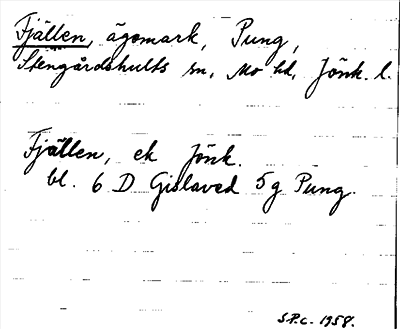 Fjällen, ägomark, Pung,
Stengårdshults sn, Mo hd, Jönk. l.
Fjällen, ek Jönk.
bl. 6 D Gislaved 5g Pung.
S.P.C. 1958.